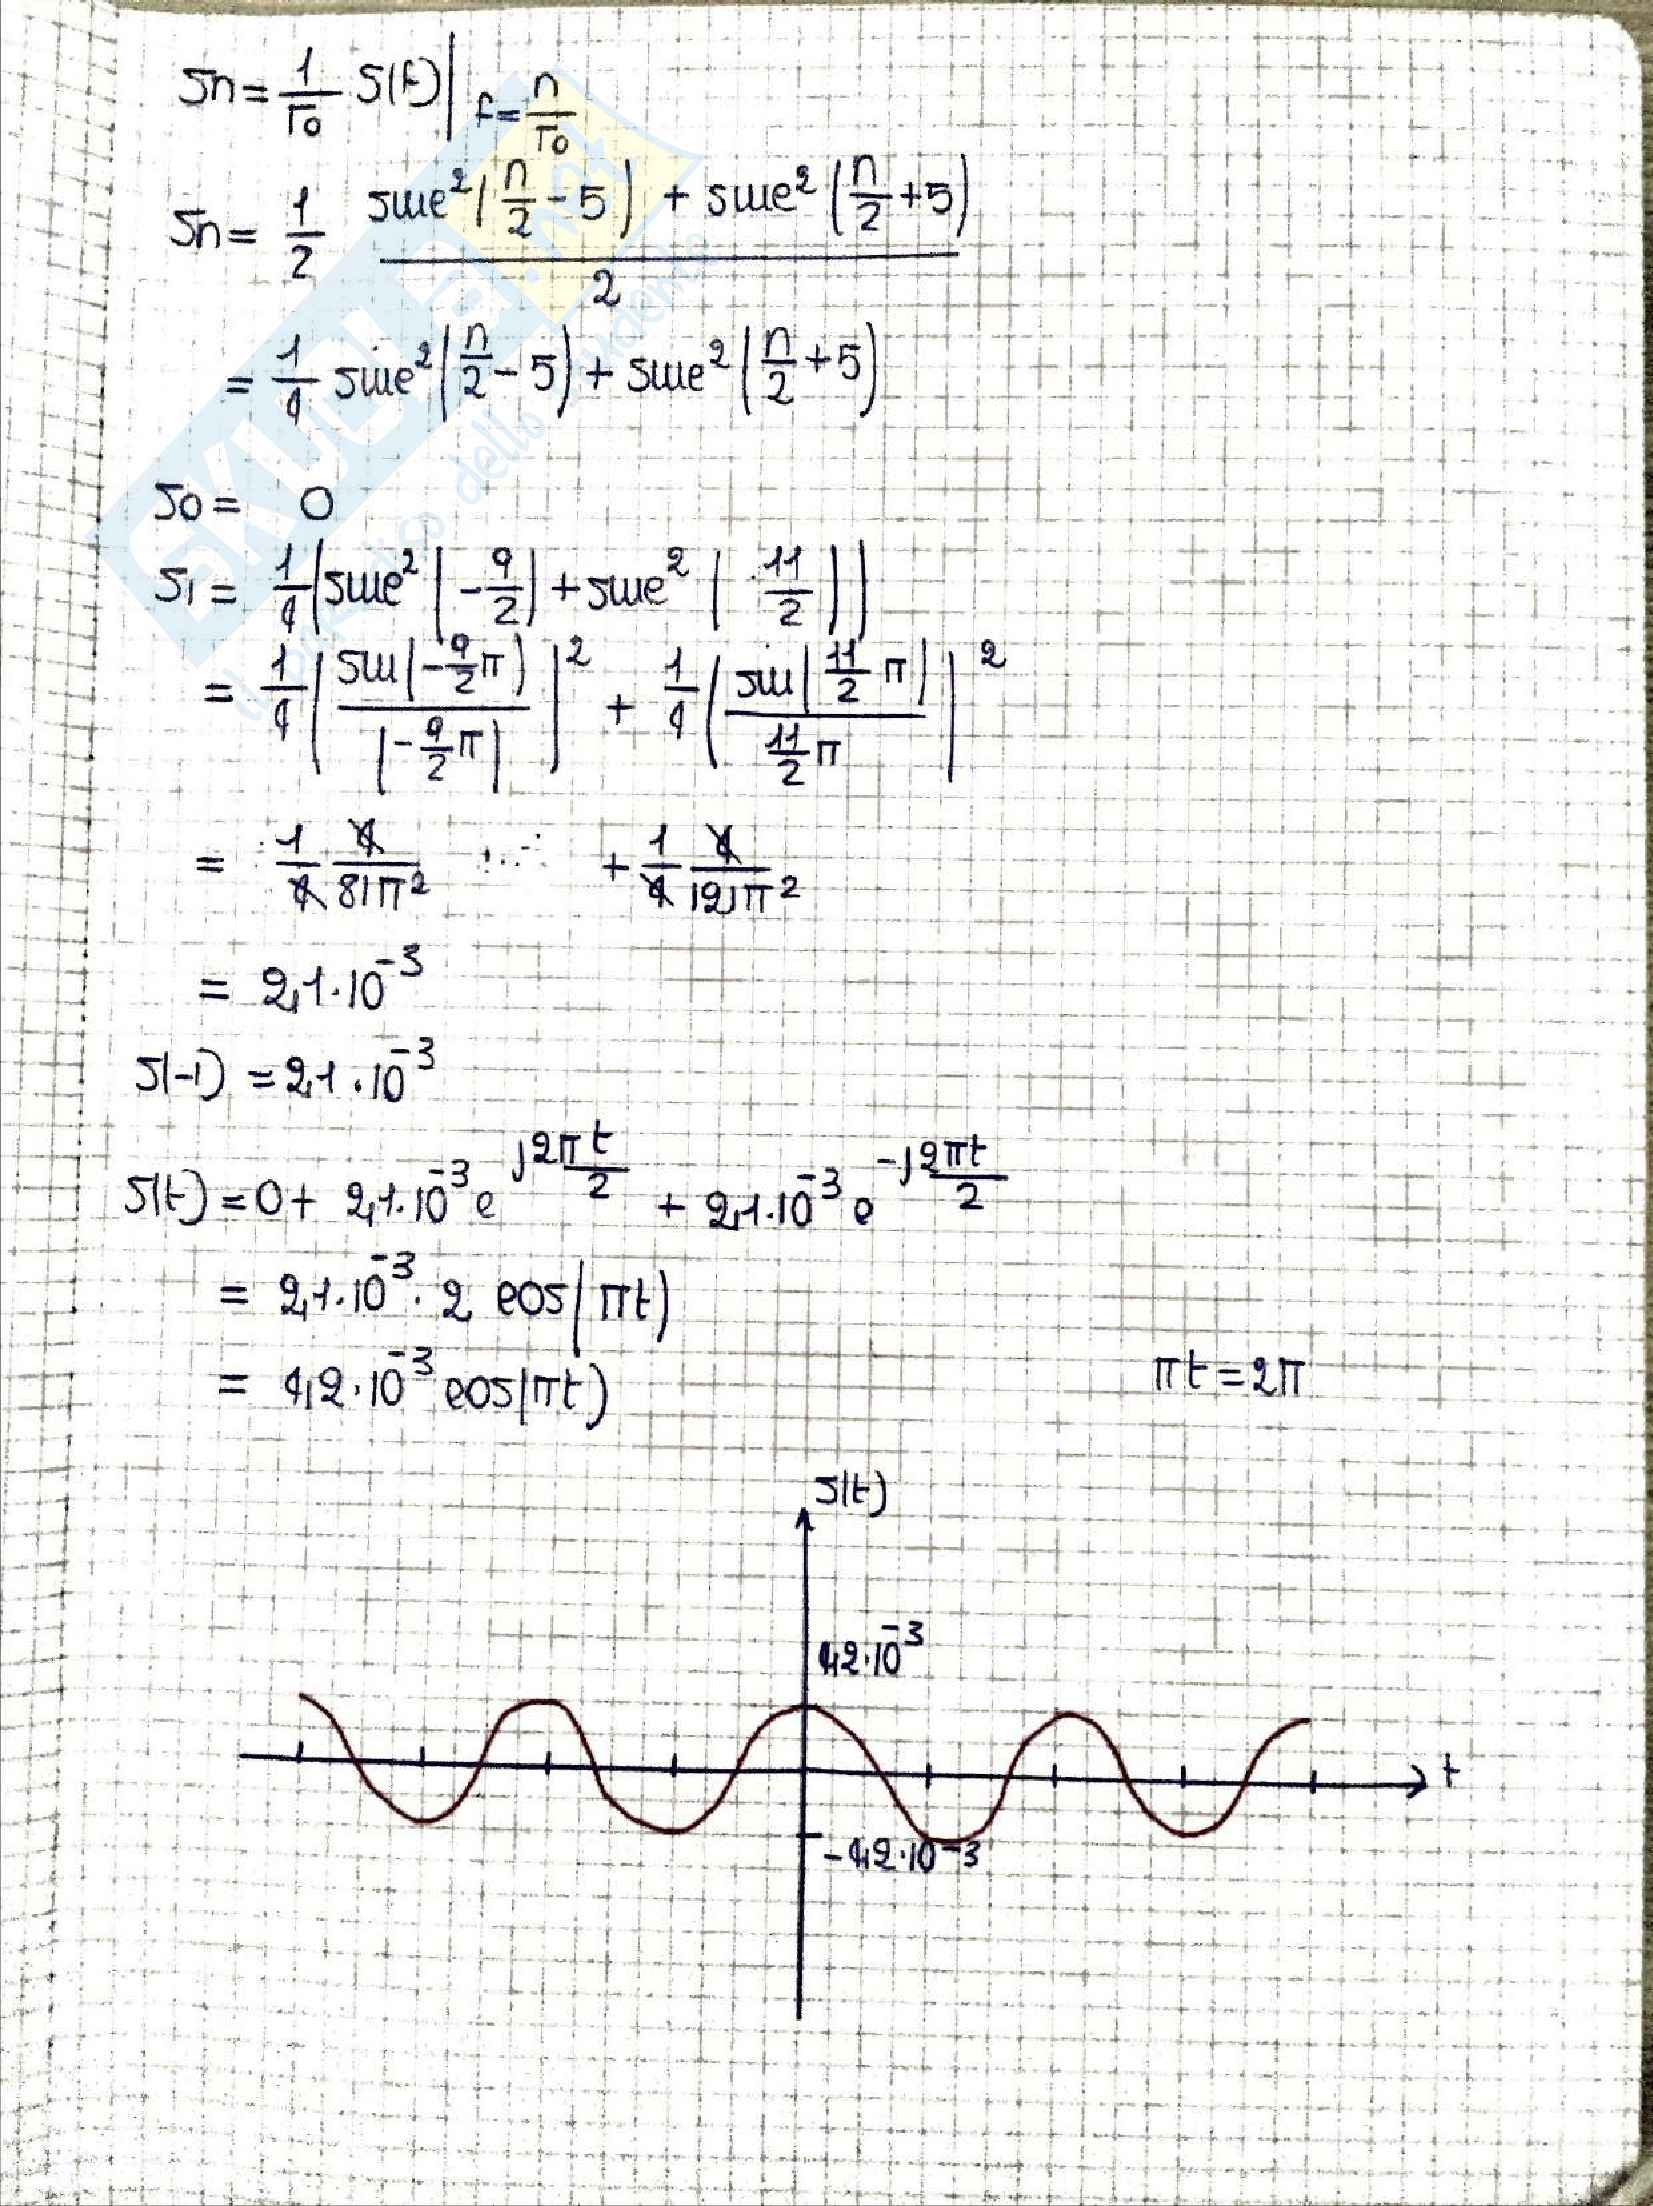 Sn = 1/T0 S(f) | f = n/T0
Sn = 1/2 (sinc²(n/2 - 5) + sinc²(n/2 + 5))/2
= 1/4 sinc²(n/2 - 5) + sinc²(n/2 + 5)
S0 = 0
S1 = 1/4 (sinc²(-9/2) + sinc²(11/2))
= 1/4 (sin(-9/2 π)/(-9/2 π))² + 1/4 (sin(11/2 π)/(11/2 π))²
= 1/4 4/81π² + 1/4 4/121π²
= 2,1·10⁻³
S(-1) = 2,1·10⁻³
S(t) = 0 + 2,1·10⁻³ e^(j2πt/2) + 2,1·10⁻³ e^(-j2πt/2)
= 2,1·10⁻³ · 2 cos(πt)
= 4,2·10⁻³ cos(πt)
πt = 2π
S(t)
4,2·10⁻³
t
-4,2·10⁻³
SKUOLa.net